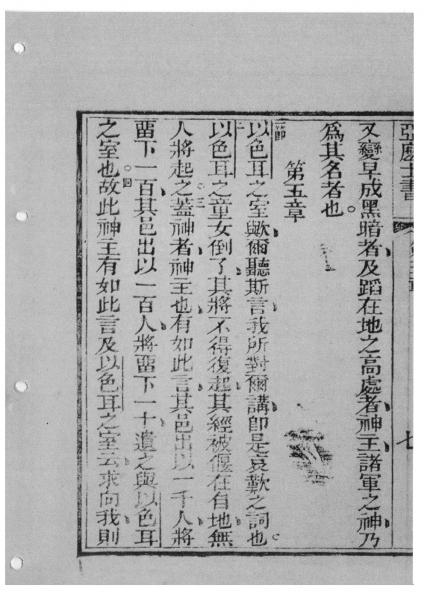 亞麼士書
七
又變早成黑暗者及蹈在地之高處者神主諸軍之神乃
爲其名者也。
第五章
一節
以色耳之室歟爾聽斯言我所對爾講卽是哀歎之詞也。
以色耳之童女倒了其將不得復起其經被偃在自地無
人將起之。三蓋神者神主也有如此言其邑出以一千人將
畱下一百其邑出以一百人將畱下一十遺之與以色耳
之室也。四故此神主有如此言及以色耳之室云求向我則